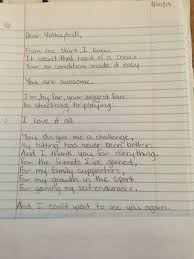 Dear Volleyball,
From the start I knew
It wasnt that hard of a choice
Your air condition made it easy
You are awesome.
I'm by far your biggest fan
to stretching to playing.
I love it all
You do give me a challenge,
My hitting has never been better.
And I thank you for everything.
for the friends I've gained,
For my family supporters,
For my growth in the sport
For gaining my self-endurance.
And I can't wait to see you again.